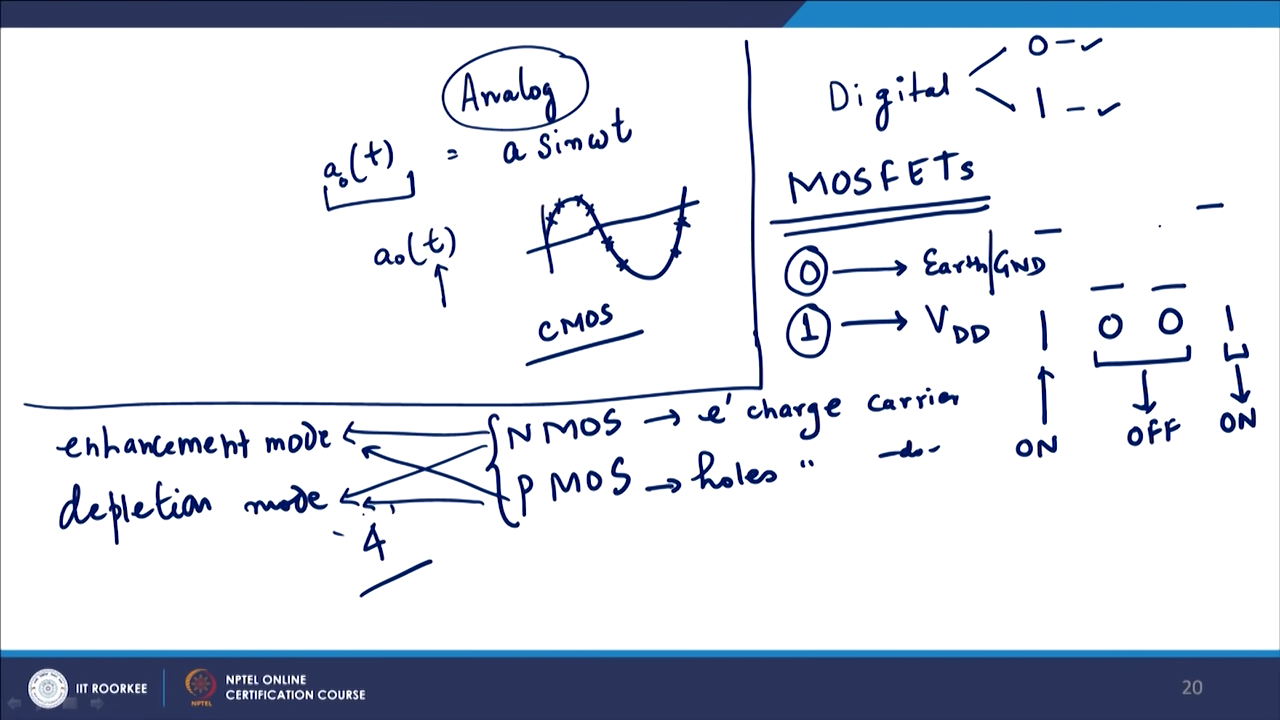 Analog
a₀(t) = a sinωt
a₀(t)
CMOS
Digital
0 - ✓
1 - ✓
MOSFETs
0 → Earth/GND
1 → VDD
1 0 0 1
ON OFF ON
enhancement mode
depletion mode
4
NMOS → e' charge carrier
PMOS → holes " -do-
IIT ROORKEE
NPTEL ONLINE
CERTIFICATION COURSE
NPTEL
20